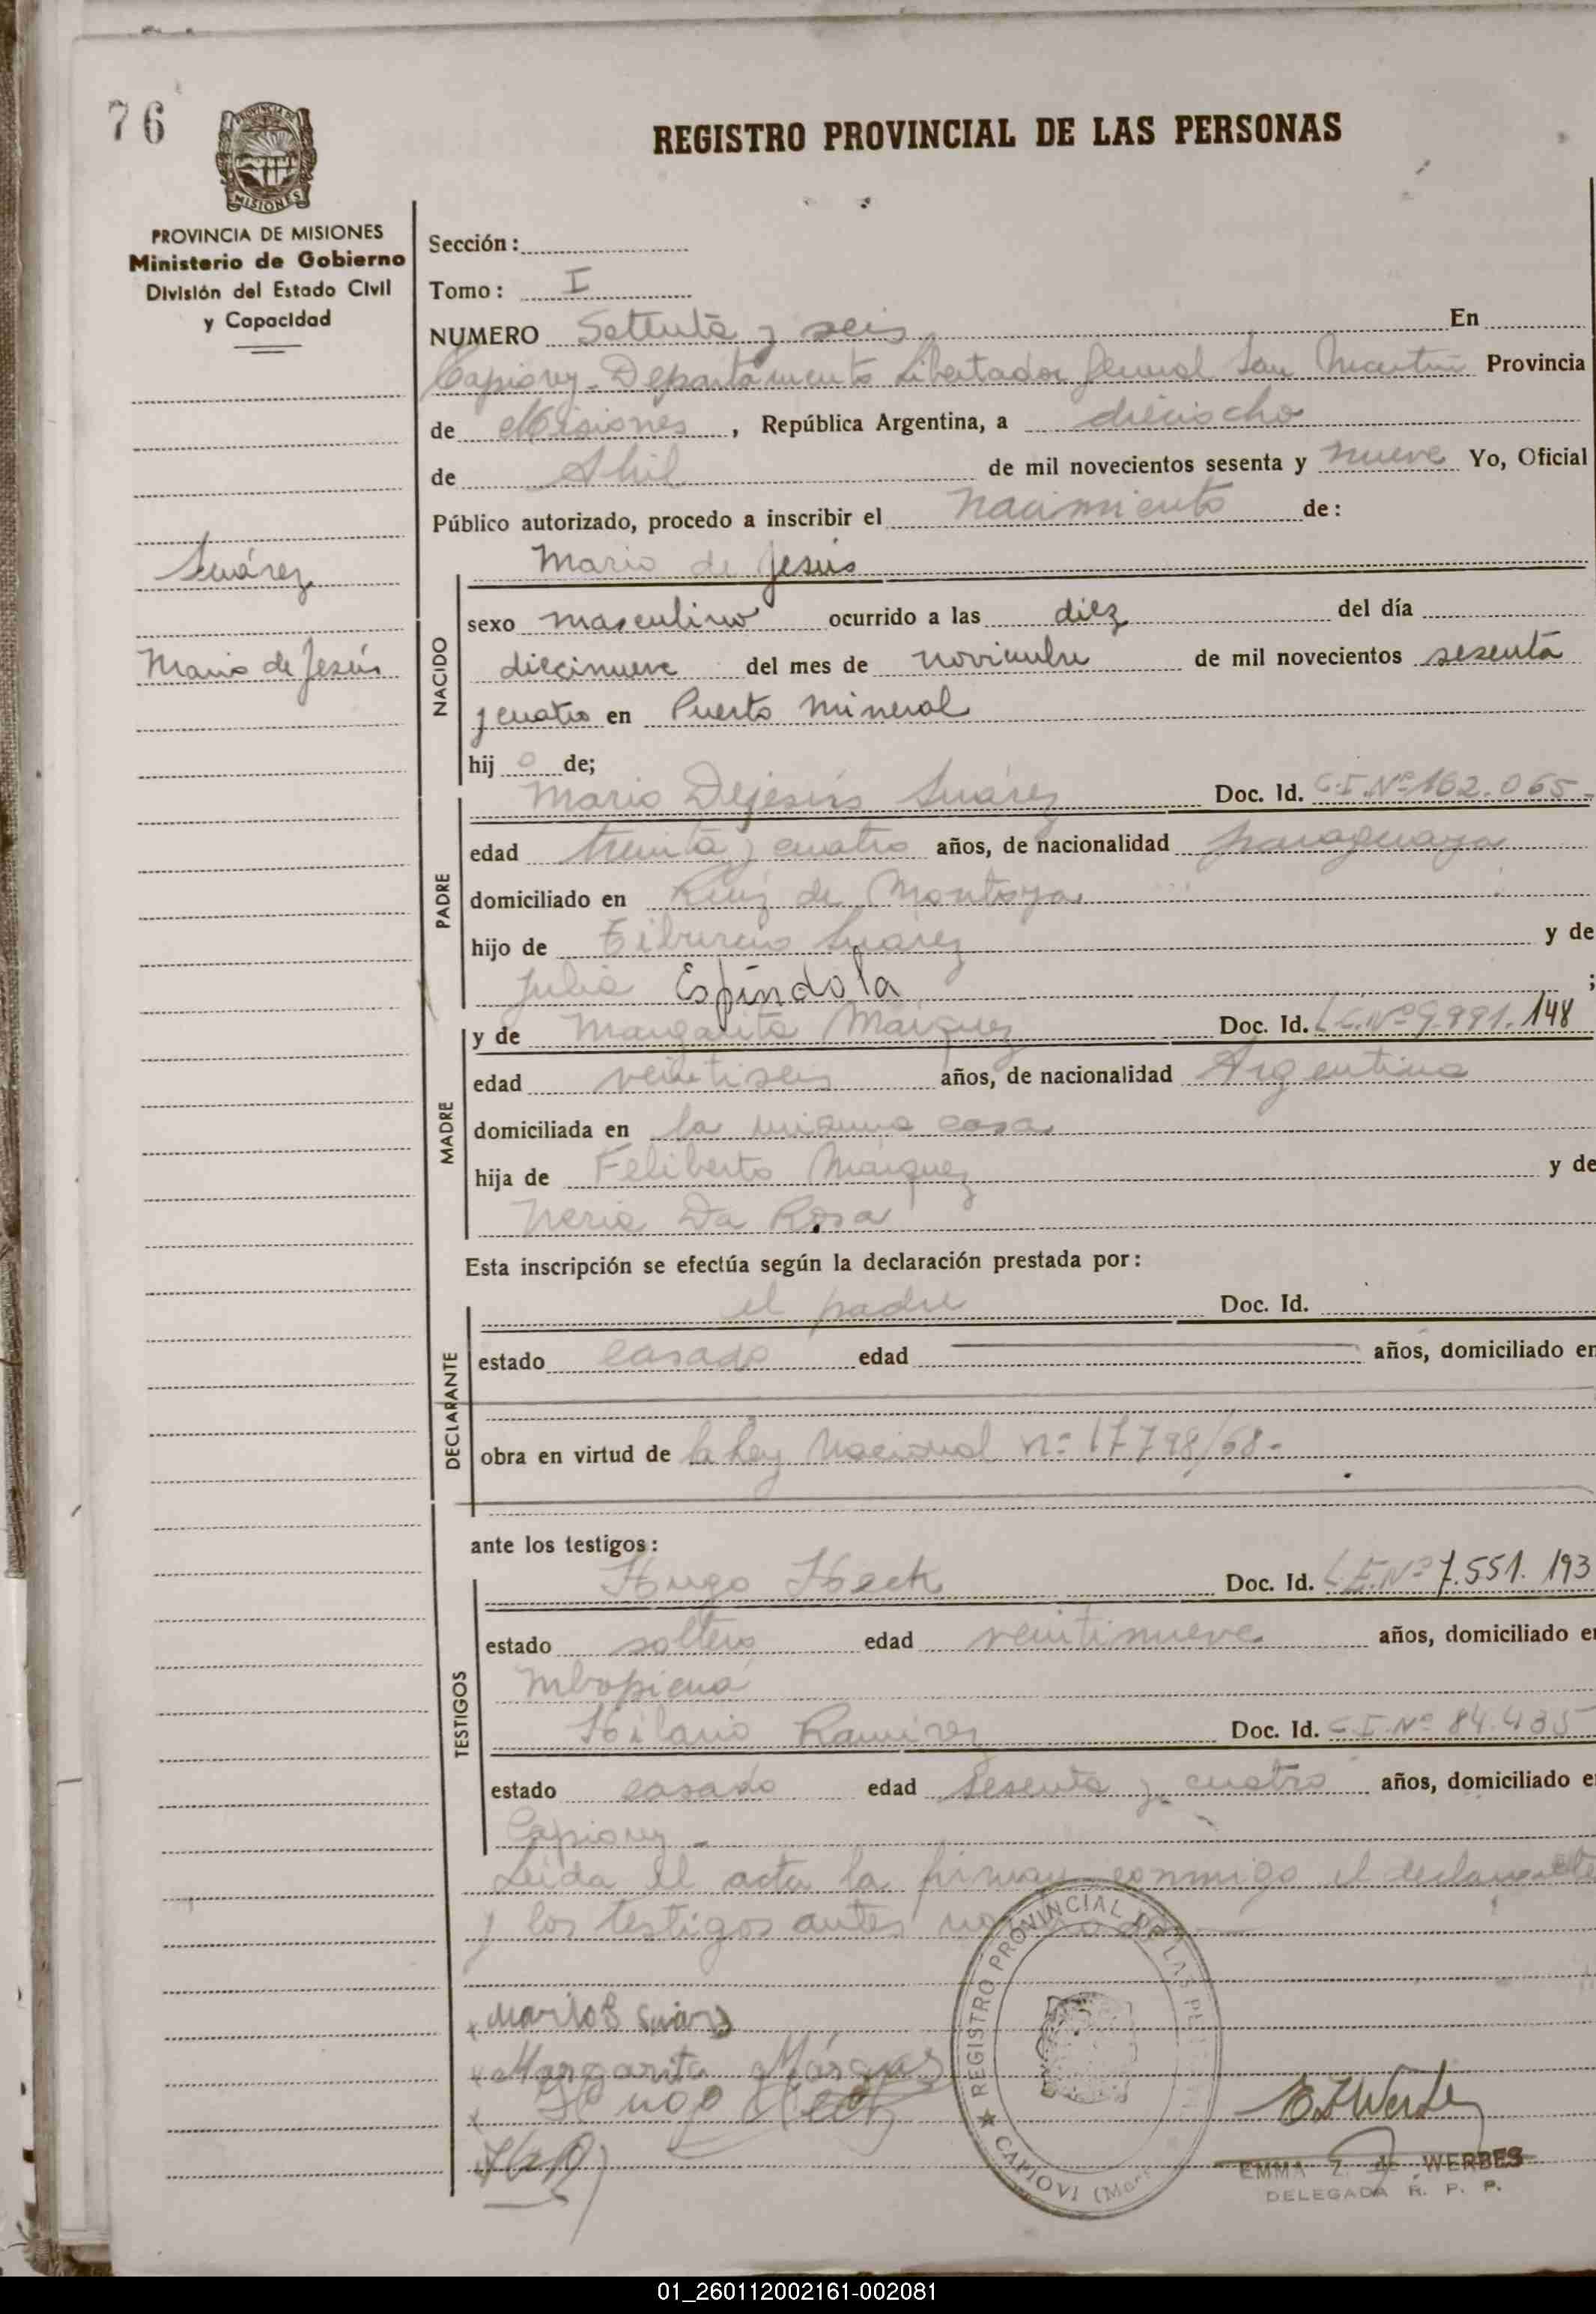 76
PROVINCIA DE MISIONES
MISIONES
REGISTRO PROVINCIAL DE LAS PERSONAS
PROVINCIA DE MISIONES
Ministerio de Gobierno
División del Estado Civil
y Capacidad
Suárez
Mario de Jesús
Sección:
Tomo: I
NUMERO Setenta y seis En
Capiovy - Departamento Libertador General San Martín Provincia
de Misiones, República Argentina, a dieciocho
de Abril de mil novecientos sesenta y nueve Yo, Oficial
Público autorizado, procedo a inscribir el nacimiento de:
Mario de Jesús
NACIDO
sexo masculino ocurrido a las diez del día
diecinueve del mes de noviembre de mil novecientos sesenta
y cuatro en Puerto Mineral
hij o de;
PADRE
Mario Dejesús Suárez Doc. Id. C.I.Nº 162.065-
edad treinta y cuatro años, de nacionalidad paraguaya
domiciliado en Ruiz de Montoya
hijo de Tiburcio Suárez y de
Julia Espíndola ;
MADRE
y de Margarita Márquez Doc. Id. L.C.Nº 9.991.148
edad veintiseis años, de nacionalidad Argentina
domiciliada en la misma casa
hija de Feliberto Márquez y de
Neria Da Rosa
Esta inscripción se efectúa según la declaración prestada por:
DECLARANTE
el padre Doc. Id.
estado casado edad años, domiciliado en
obra en virtud de la Ley Nacional nº 17798/68.-
ante los testigos:
TESTIGOS
Hugo Heck Doc. Id. L.E.Nº 7.551.193
estado soltero edad veintinueve años, domiciliado en
Mbopicuá
Hilario Ramírez Doc. Id. C.I.Nº 84.435
estado casado edad sesenta y cuatro años, domiciliado en
Capiovy -
Leida el acta la firman conmigo el declarante
y los testigos antes
Margarita Márquez
Hugo Heck
REGISTRO PROVINCIAL DE LAS
CAPIOVI
EMMA WERBES
DELEGADA R. P. P.
01_260112002161-002081